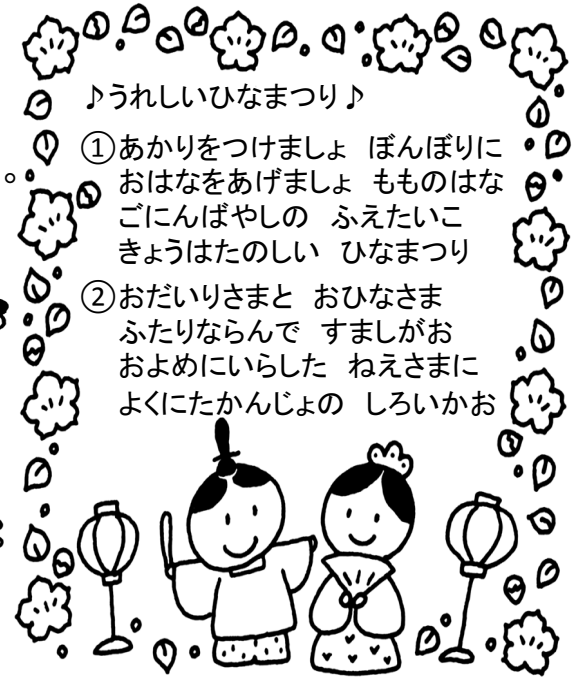 ♪うれしいひなまつり♪
①あかりをつけましょ ぼんぼりに
おはなをあげましょ もものはな
ごにんばやしの ふえたいこ
きょうはたのしい ひなまつり
②おだいりさまと おひなさま
ふたりならんで すましがお
およめにいらした ねえさまに
よくにたかんじょの しろいかお